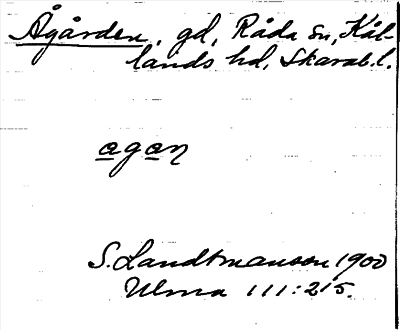 Ågården, gd, Råda sn, Kål-
lands hd, Skarab.l.
agan
S. Landtmanson 1900
Ulma 111:215.